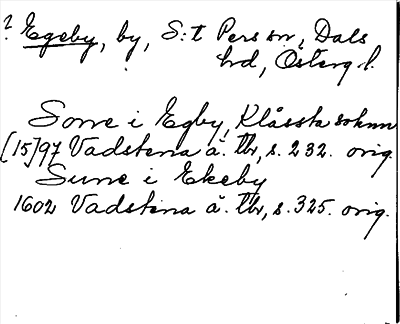 ? Egeby, by, S:t Pers sn, Dals
hd, Österg.l.
Sone i Egby, Klåssta soknn
[15]97 Vadstena ä. Tbr, s. 232. orig.
Sune i Ekeby
1602 Vadstena ä. Tbr, s. 325. orig.